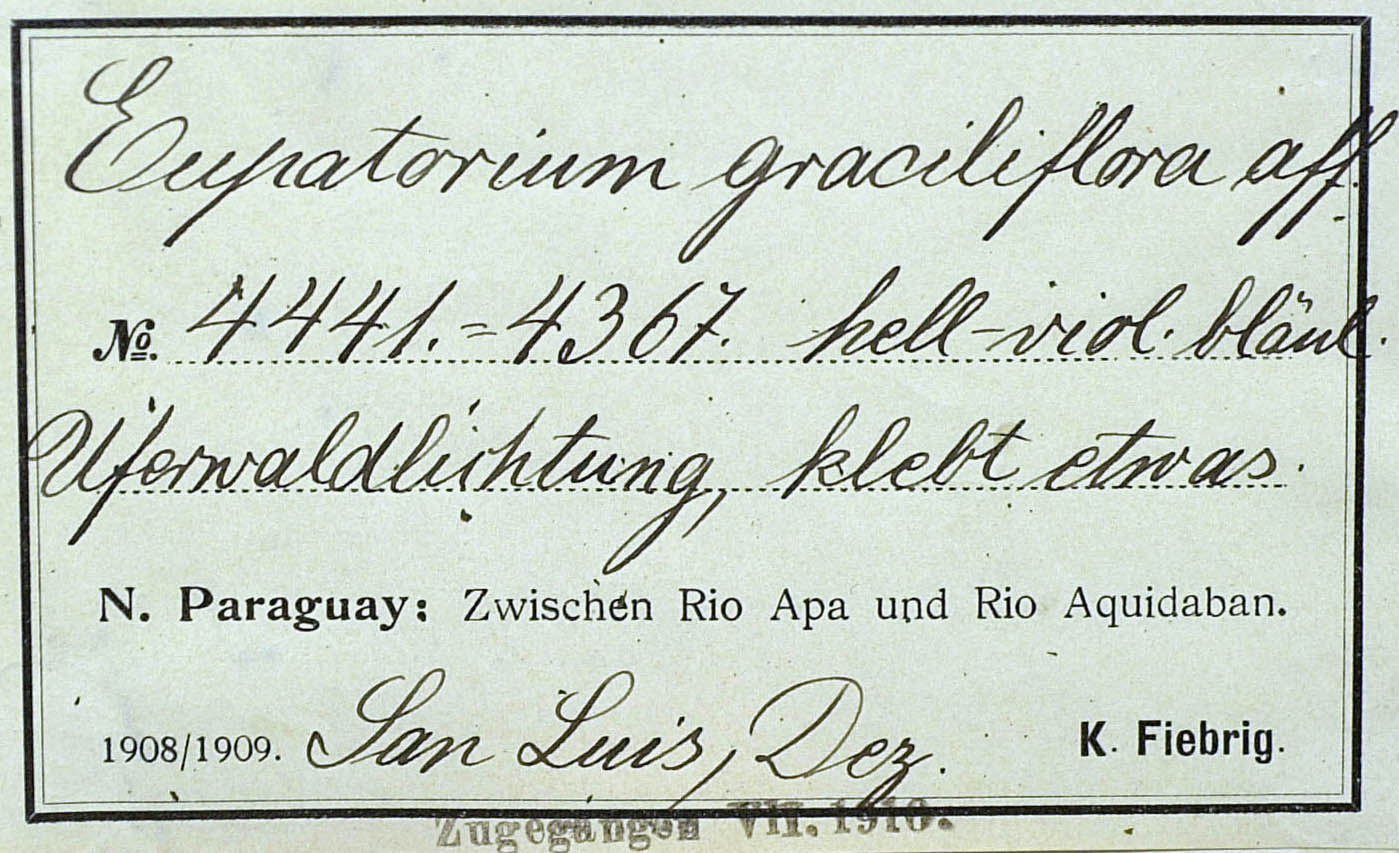 Eupatorium graciliflora aff.
№. 4441. = 4367. hell-viol. bläul.
Uferwaldlichtung, klebt etwas.
N. Paraguay: Zwischen Rio Apa und Rio Aquidaban.
1908/1909. San Luis, Dez. K. Fiebrig.
Zugegangen VII. 1910.